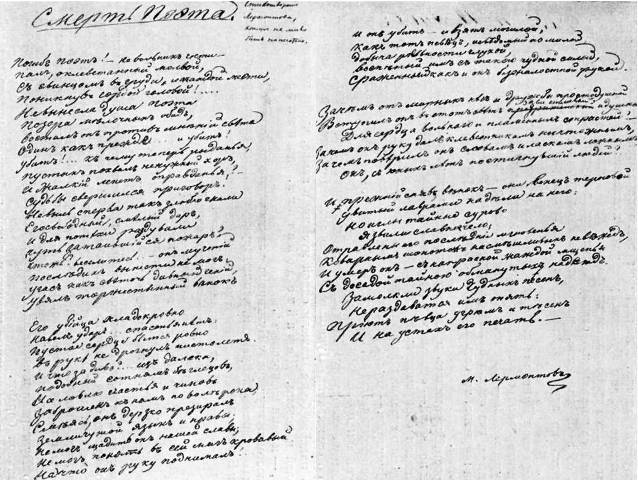 Смерть Поэта.
Стихотворение
Лермонтова,
Погибъ Поэтъ! — невольникъ чести —
палъ, оклеветанный молвой,
Съ свинцомъ въ груди, и жаждой мести,
Поникнувъ гордой головой!....
Не вынесла душа Поэта
Позора мелочныхъ обидъ,
Возсталъ онъ противъ мнѣній свѣта
Одинъ какъ прежде.... и убитъ!
Убитъ!... къ чему теперь рыданья,
Пустыхъ похвалъ ненужный хоръ,
И жалкій лепетъ оправданья?
Судьбы свершился приговоръ!
Не вы ль сперва такъ злобно гнали
Его свободный, смѣлый даръ,
И для потѣхи раздували
Чуть затаившійся пожаръ?
Чтожъ? веселитесь!.. — онъ мученій
Послѣднихъ вынести не могъ,
Угасъ, какъ свѣточь, дивный геній,
Увялъ торжественный вѣнокъ
Его убійца хладнокровно
Навелъ ударъ... спасенья нѣтъ.
Пустое сердце бьется ровно
Въ рукѣ не дрогнулъ пистолетъ.
И что за диво?... изъ далека,
Подобный сотнямъ бѣглецовъ,
На ловлю счастья и чиновъ
Заброшенъ къ намъ по волѣ рока,
Смѣясь, онъ дерзко презиралъ
Земли чужой языкъ и нравы;
Не могъ щадить онъ нашей славы;
Не могъ понять въ сей мигъ кровавый
На что онъ руку поднималъ!
И онъ убитъ — и взятъ могилой,
Какъ тотъ пѣвецъ, невѣдомый но милый,
Добыча ревности глухой,
Воспѣтый имъ съ такою чудной силой,
Сраженный какъ и онъ безжалостной рукой. —
Зачѣмъ отъ мирныхъ нѣгъ и дружбы простодушной
Вступилъ онъ въ этотъ свѣтъ
Для сердца вольнаго и пламенныхъ страстей? —
Зачѣмъ онъ руку далъ клеветникамъ ничтожнымъ,
Зачѣмъ повѣрилъ онъ словамъ и ласкамъ ложнымъ,
Онъ, съ юныхъ лѣтъ постигнувшій людей?
И прежній снявъ вѣнокъ — они вѣнецъ терновый
Увитый лаврами надѣли на него:
Но иглы тайныя сурово
Язвили славное чело,
Отравлены его послѣднія мгновенья
Коварнымъ шопотомъ насмѣшливыхъ невѣждъ,
И умеръ онъ — съ напрасной жаждой мщенья
Съ досадой тайною обманутыхъ надеждъ.
Замолкли звуки чудныхъ пѣсенъ,
Не раздаватся имъ опять:
Пріютъ пѣвца угрюмъ и тѣсенъ
И на устахъ его печать. —
М. Лермонтовъ